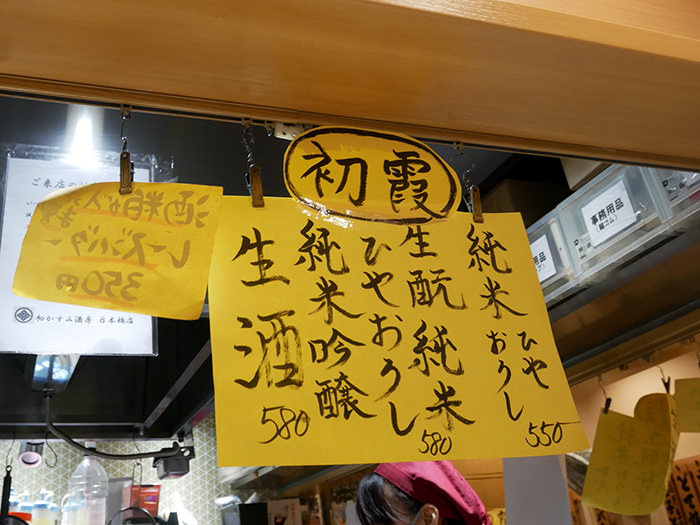 初霞
純米
ひやおろし
550
生酛純米
ひやおろし
580
純米吟醸
生酒
580
酒粕が入った
レーズンバター
350円
ご来店の
和かすみ酒房 日本橋店
事務用品
(輪ゴム)
事務用品